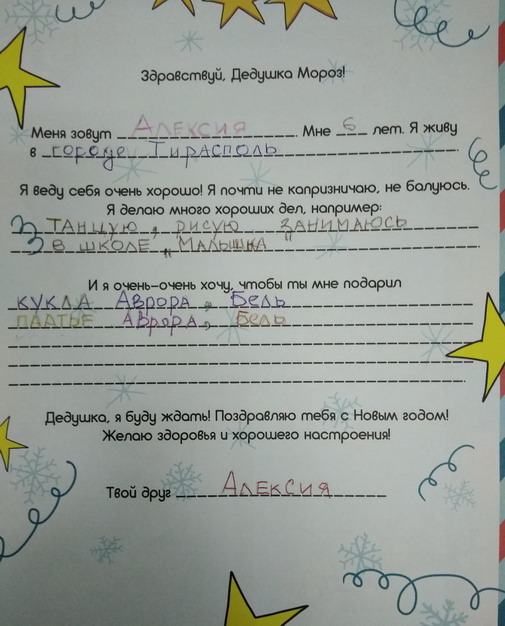 Здравствуй, Дедушка Мороз!
Меня зовут Алексия. Мне 6 лет. Я живу
в городе Тирасполь.
Я веду себя очень хорошо! Я почти не капризничаю, не балуюсь.
Я делаю много хороших дел, например:
Танцую, рисую занимаюсь
в школе „Малышка"
И я очень-очень хочу, чтобы ты мне подарил
кукла Аврора, Бель
платье Аврора, Бель
Дедушка, я буду ждать! Поздравляю тебя с Новым годом!
Желаю здоровья и хорошего настроения!
Твой друг Алексия